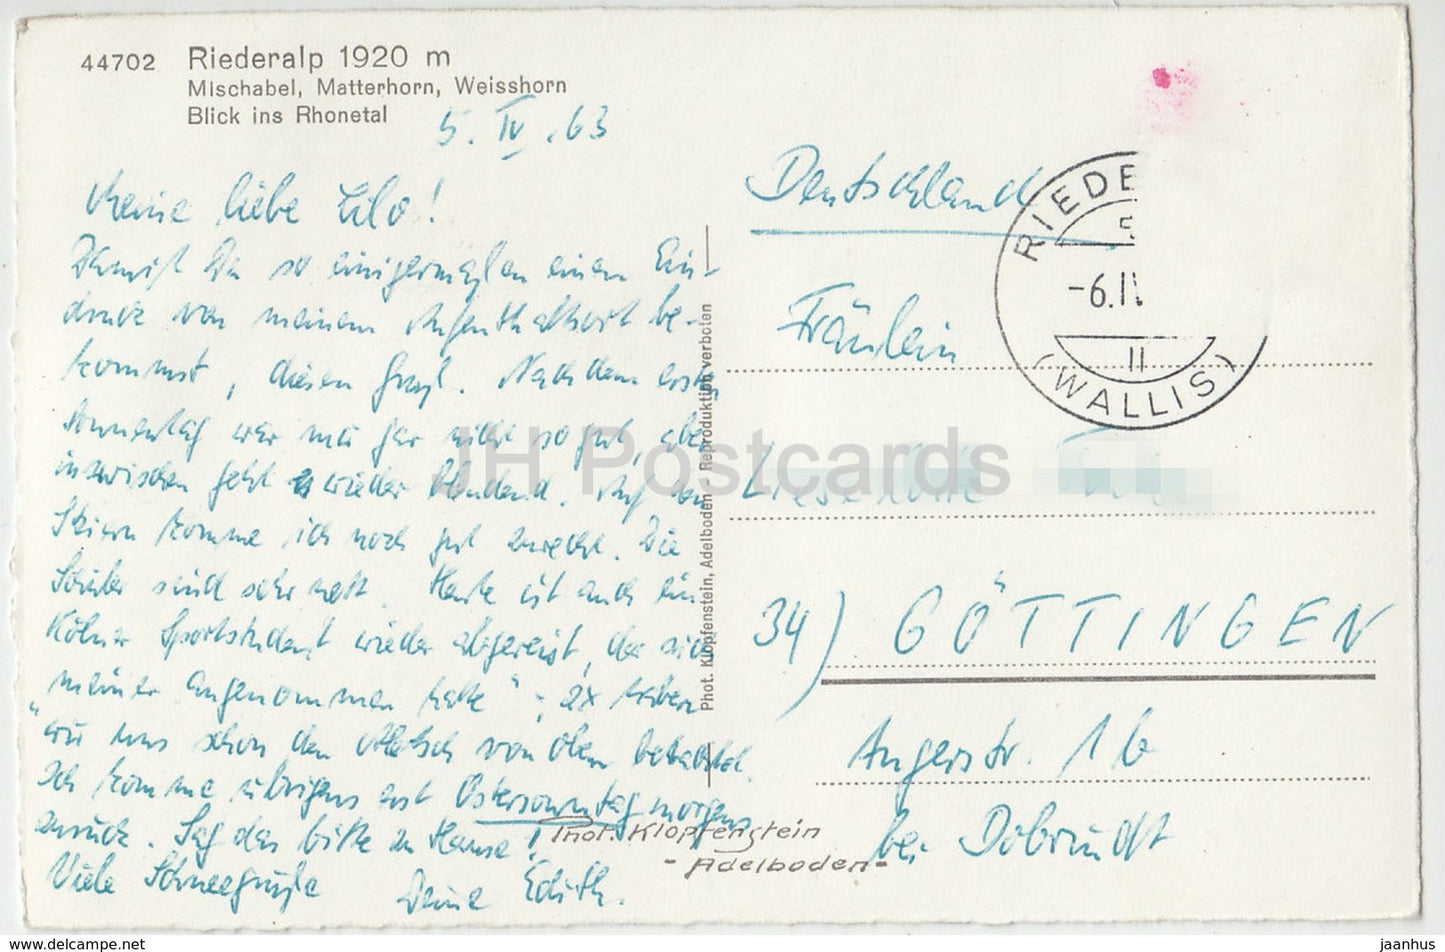 44702 Riederalp 1920 m
Mischabel, Matterhorn, Weisshorn
Blick ins Rhonetal
5. IV. 63
Meine liebe Lilo!
Damit Du so einigermaßen einen Ein-
druck von meinem Aufenthaltsort be-
kommst, diesen Gruß. Nach dem ersten
Sonnentag war mir gar nicht so gut, aber
inzwischen geht es wieder blendend. Auf den
Skiern komme ich noch gut zurecht. Die
Schüler sind sehr nett. Heute ist auch ein
Kölner Sportstudent wieder abgereist, der sich
"meiner angenommen hatte"; 2x haben
wir uns schon den Aletsch von oben betrachtet.
Ich komme übrigens erst Ostersonntag morgens
zurück. Sag das bitte zu Hause!
Viele Schneegrüße Deine Edith.
Phot. Klopfenstein
- Adelboden -
Phot. Klopfenstein, Adelboden - Reproduktion verboten
Deutschland
Fräulein
Lieselotte
34) GÖTTINGEN
Angerstr. 1b
bei Dobrindt
RIEDE
-6.IV
II
(WALLIS)
JH Postcards
delcampe.net
jaanhus